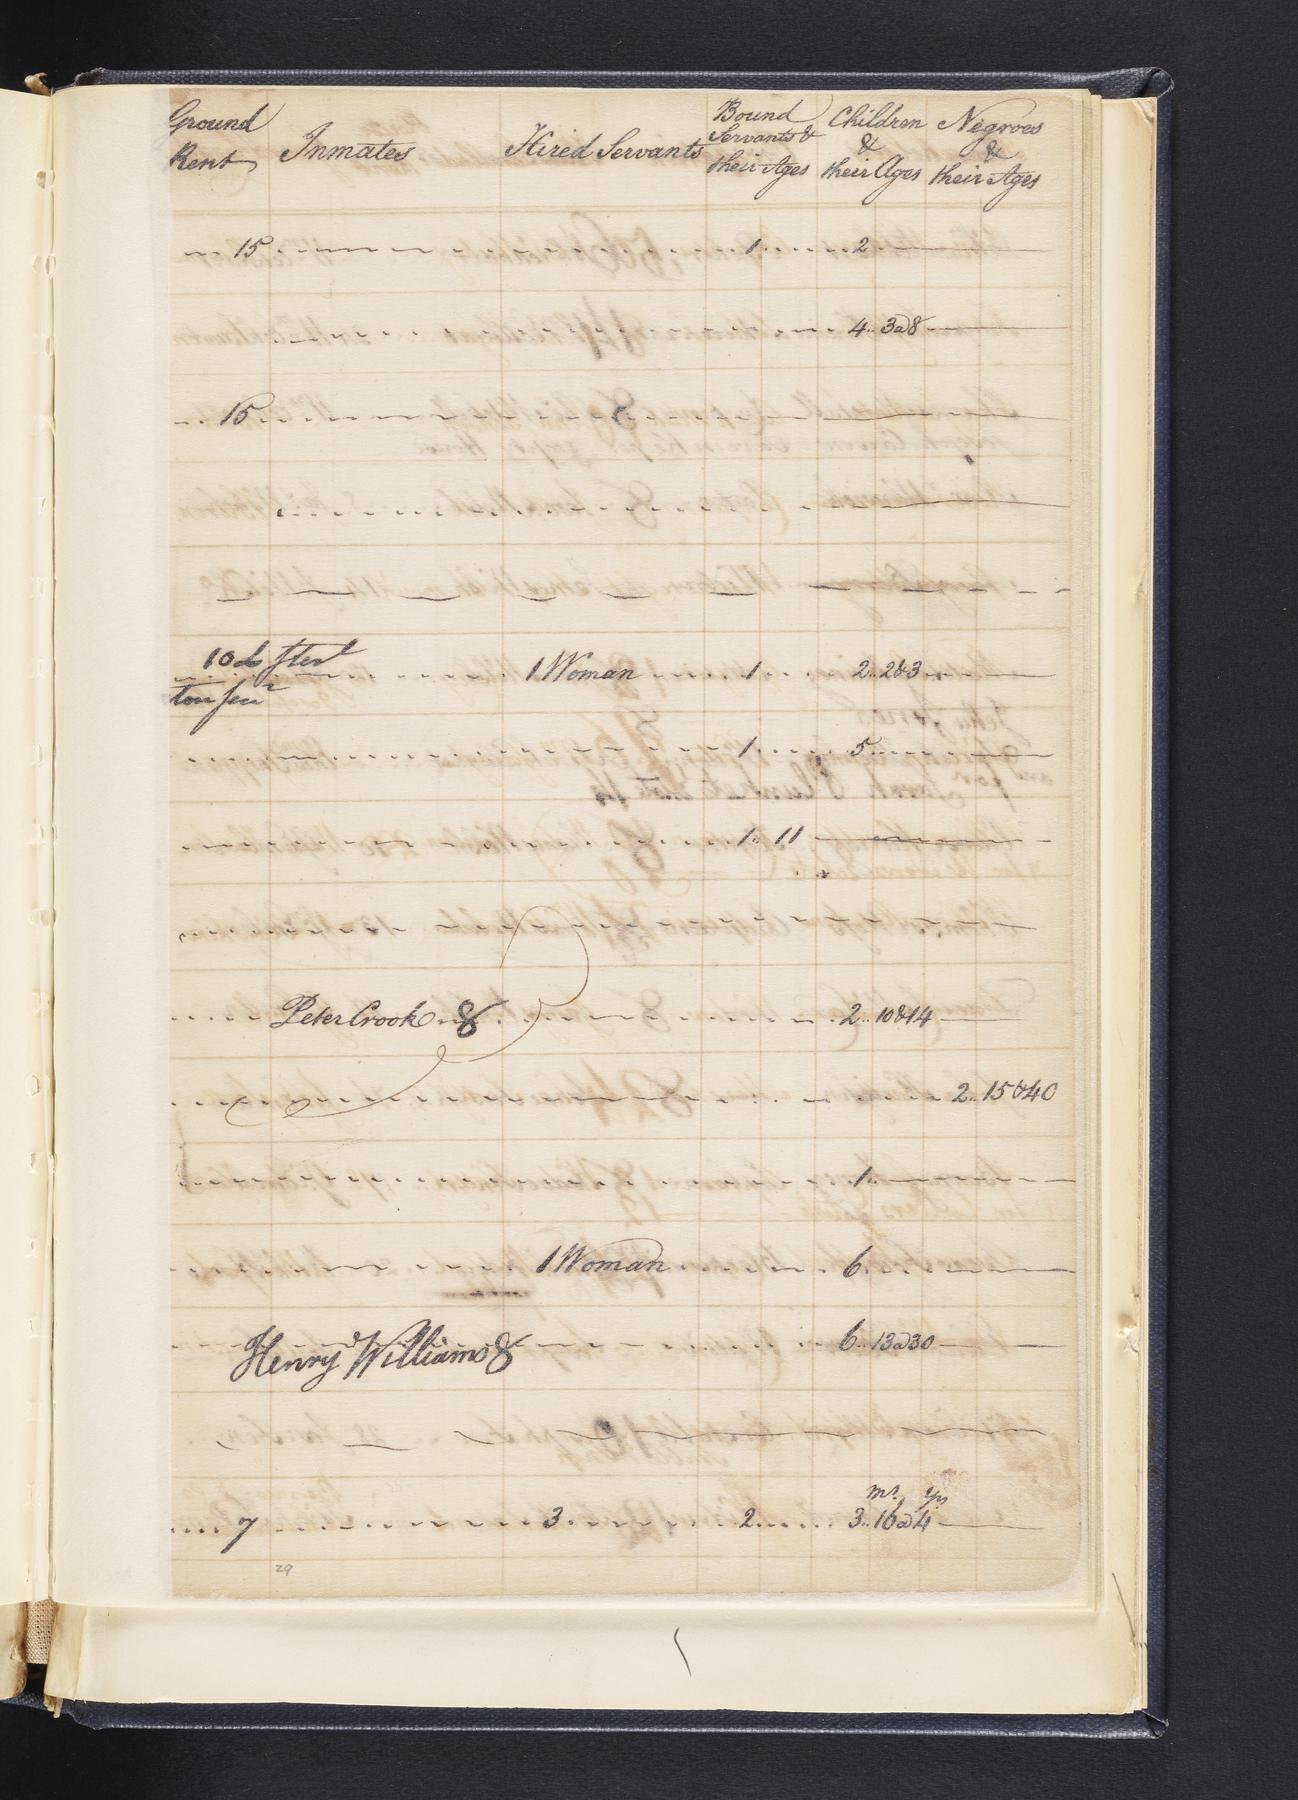 Ground Rent Inmates Hired Servants Bound Servants & their Ages Children & their Ages Negroes & their Ages
15 1 2
4.. 3@8
15
10 Ster 1 Woman 1 2.. 2&3
1 5
1.. 11
Peter Crook & 2.. 10&14
2.. 15&40
1..
1 Woman 6
Henry Williams & 6.. 13@30
ms. ys
7 3 2 3.. 16@4
29